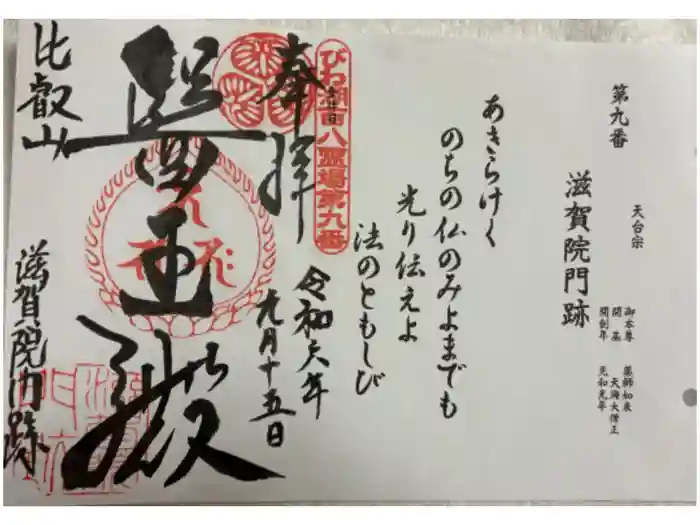 第九番
天台宗
滋賀院門跡
御本尊 薬師如来
開基 天海大僧正
開創年 元和元年
あきらけく
のちの仏のみよまでも
光り伝えよ
法のともしび
奉拝
びわ湖百八霊場第九番
令和六年
九月十五日
醫王殿
比叡山
滋賀院門跡